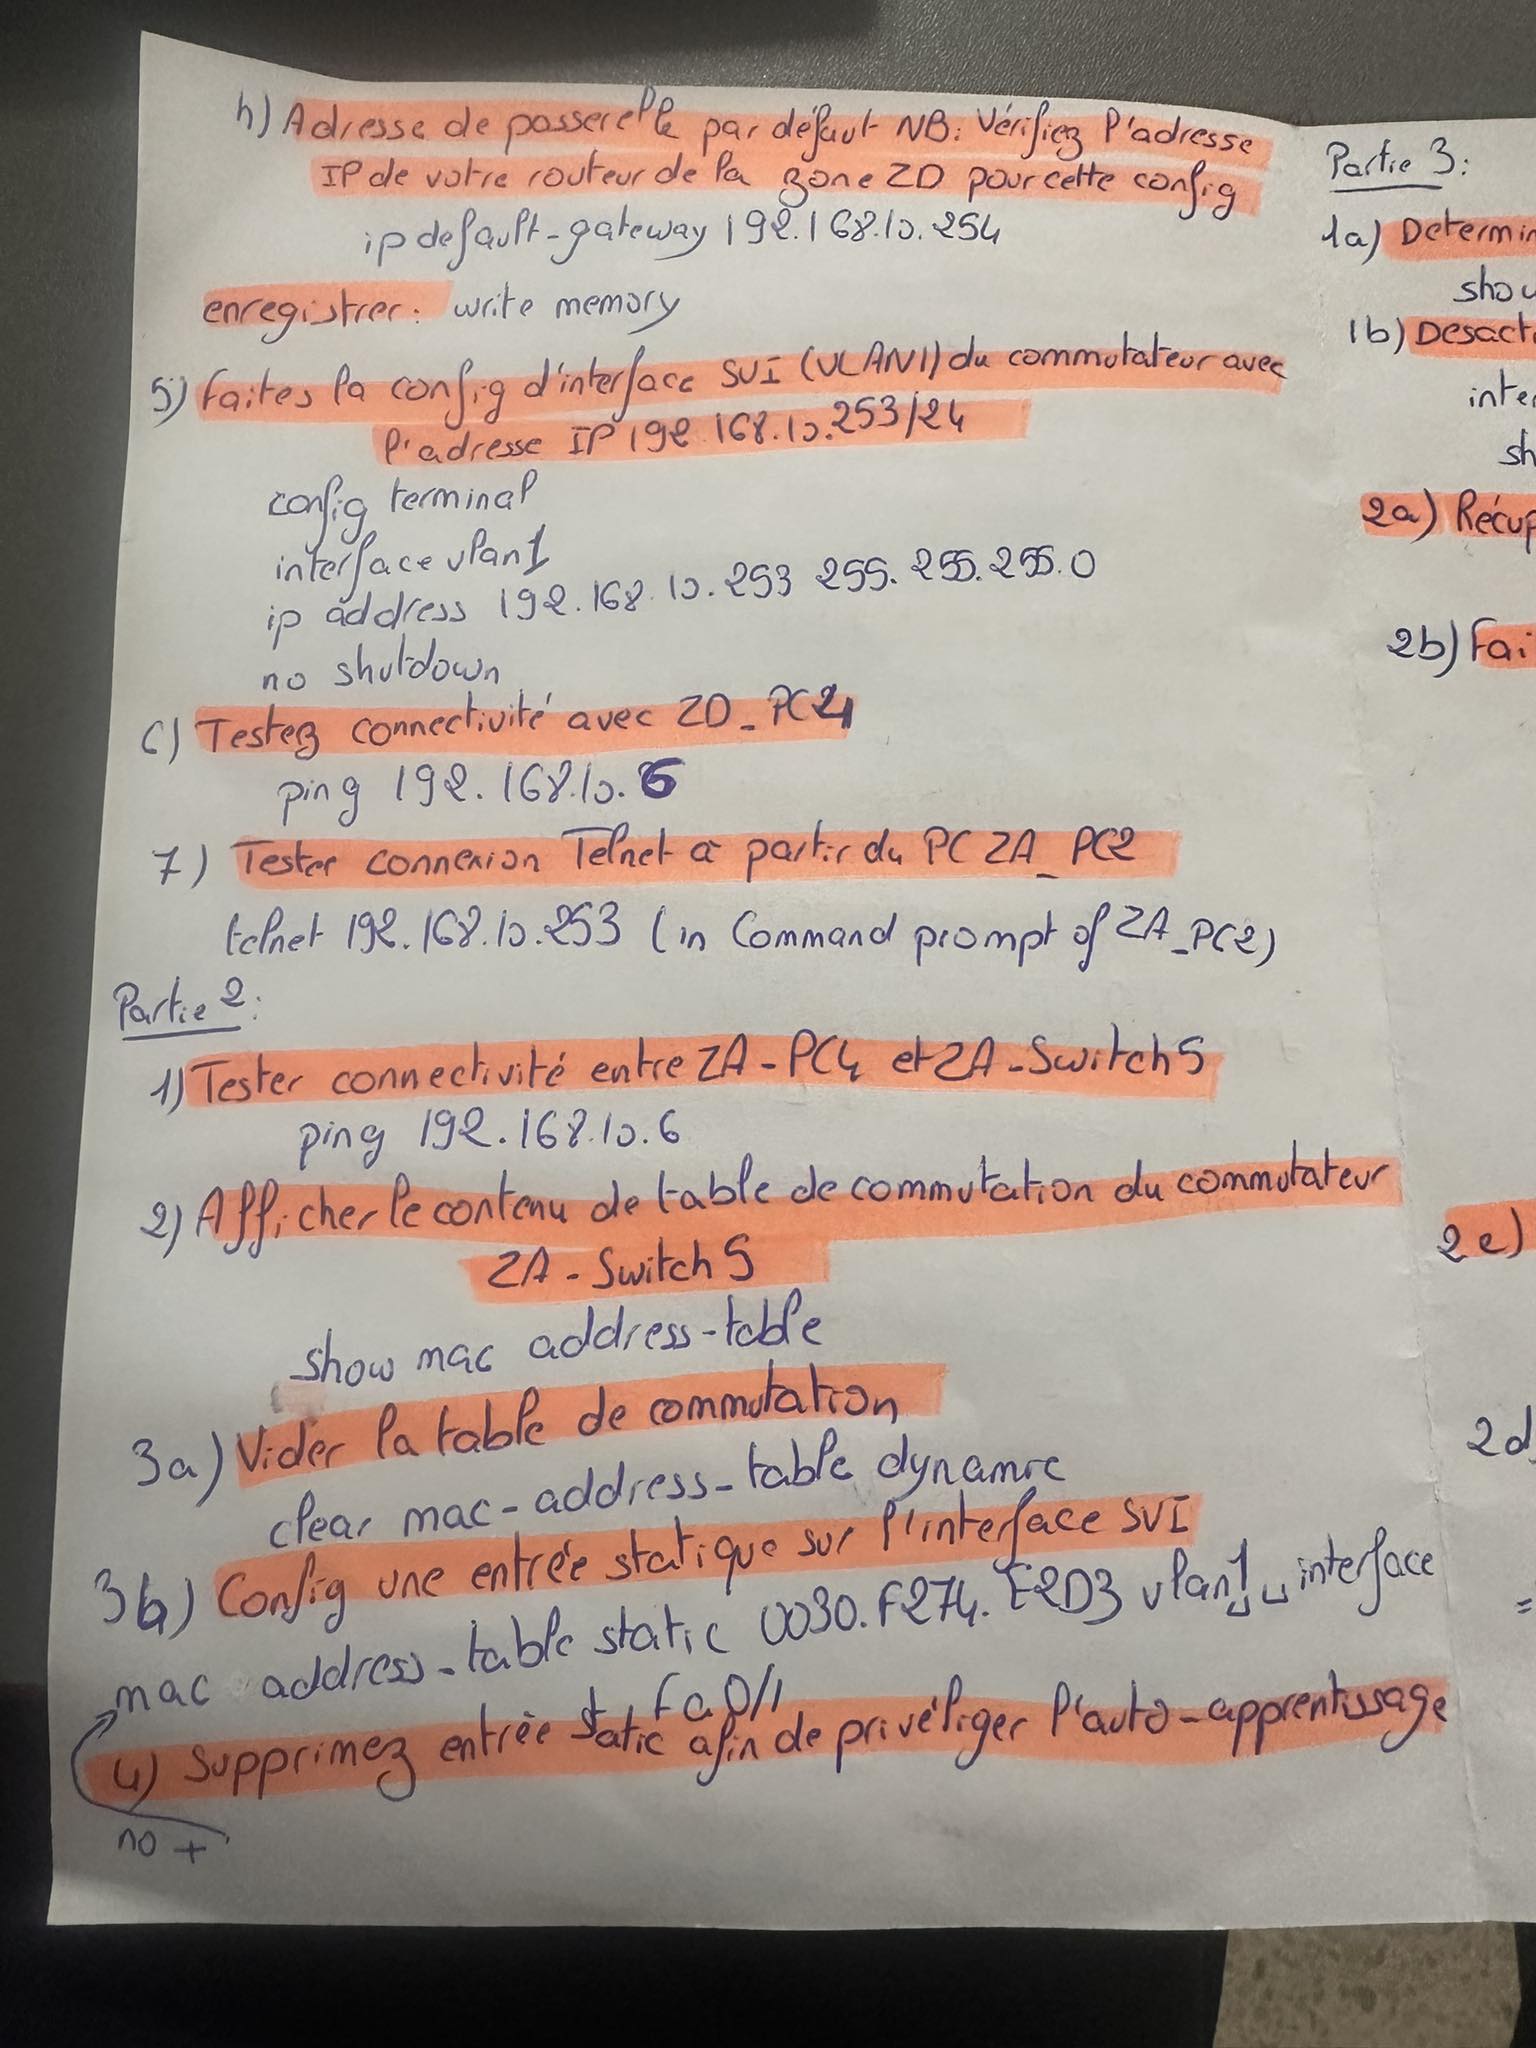 h) Adresse de passerelle par défaut NB: Vérifiez l'adresse
IP de votre routeur de la zone ZD pour cette config
ip default-gateway 192.168.10.254
enregistrer: write memory
5) Faites la config d'interface SVI (VLAN1) du commutateur avec
l'adresse IP 192.168.10.253/24
config terminal
interface vlan1
ip address 192.168.10.253 255.255.255.0
no shutdown
6) Testez connectivité avec ZD_PC4
ping 192.168.10.6
7) Tester connexion Telnet à partir du PC ZA_PC2
telnet 192.168.10.253 (in Command prompt of ZA_PC2)
Partie 2:
1) Tester connectivité entre ZA-PC4 et ZA-Switch5
ping 192.168.10.6
2) Afficher le contenu de table de commutation du commutateur
ZA-Switch5
show mac address-table
3a) Vider la table de commutation
clear mac-address-table dynamic
3b) Config une entrée statique sur l'interface SVI
mac address-table static 0030.F274.E2D3 vlan1 interface
Fa0/1
4) Supprimez entrée static afin de privéliger l'auto-apprentissage
no +
Partie 3:
1a) Determin
show
1b) Desact
inter
sh
2a) Récup
2b) Fai
2c)
2d)
=